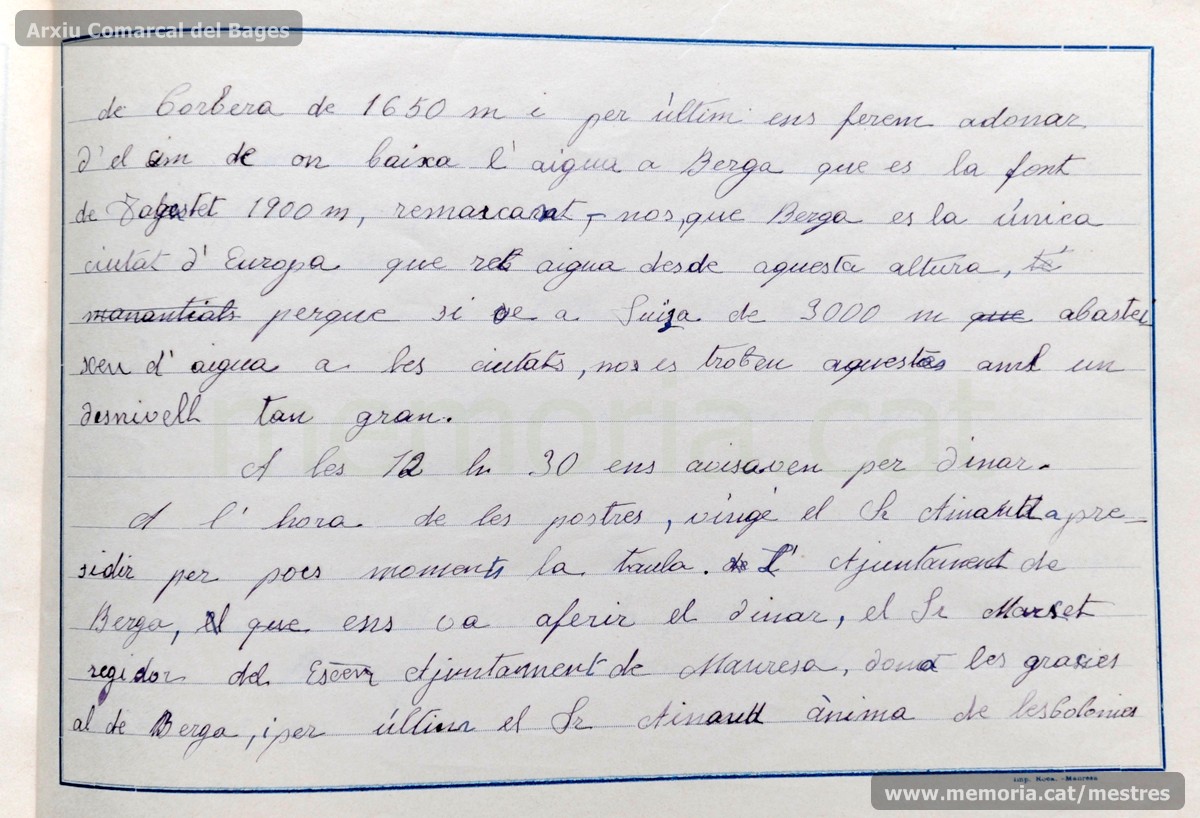 Arxiu Comarcal del Bages
de Corbera de 1650 m i per últim ens ferem adonar
d'el cim de on baixa l'aigua a Berga que es la font
de 1900 m, remarcant-nos, que Berga es la única
ciutat d'Europa que reb aigua desde aquesta altura, té
manantials perque si ve a Suiza de 3000 m que abastei
xen d'aigua a les ciutats, nos es troben aquestas amb un
desnivell tan gran.
A les 12 h 30 ens avisaven per dinar.
A l'hora de les postres, vingé el Sr Ainaud a pre-
sidir per pocs moments la taula. de L'Ajuntament de
Berga, el que ens va aferir el dinar, el Sr Marset
regidor del Excm Ajuntament de Manresa, doná les gracies
al de Berga, i per últim el Sr Ainaud ànima de les Colonies
Imp. Roca. - Manresa
memoria.cat
www.memoria.cat/mestres